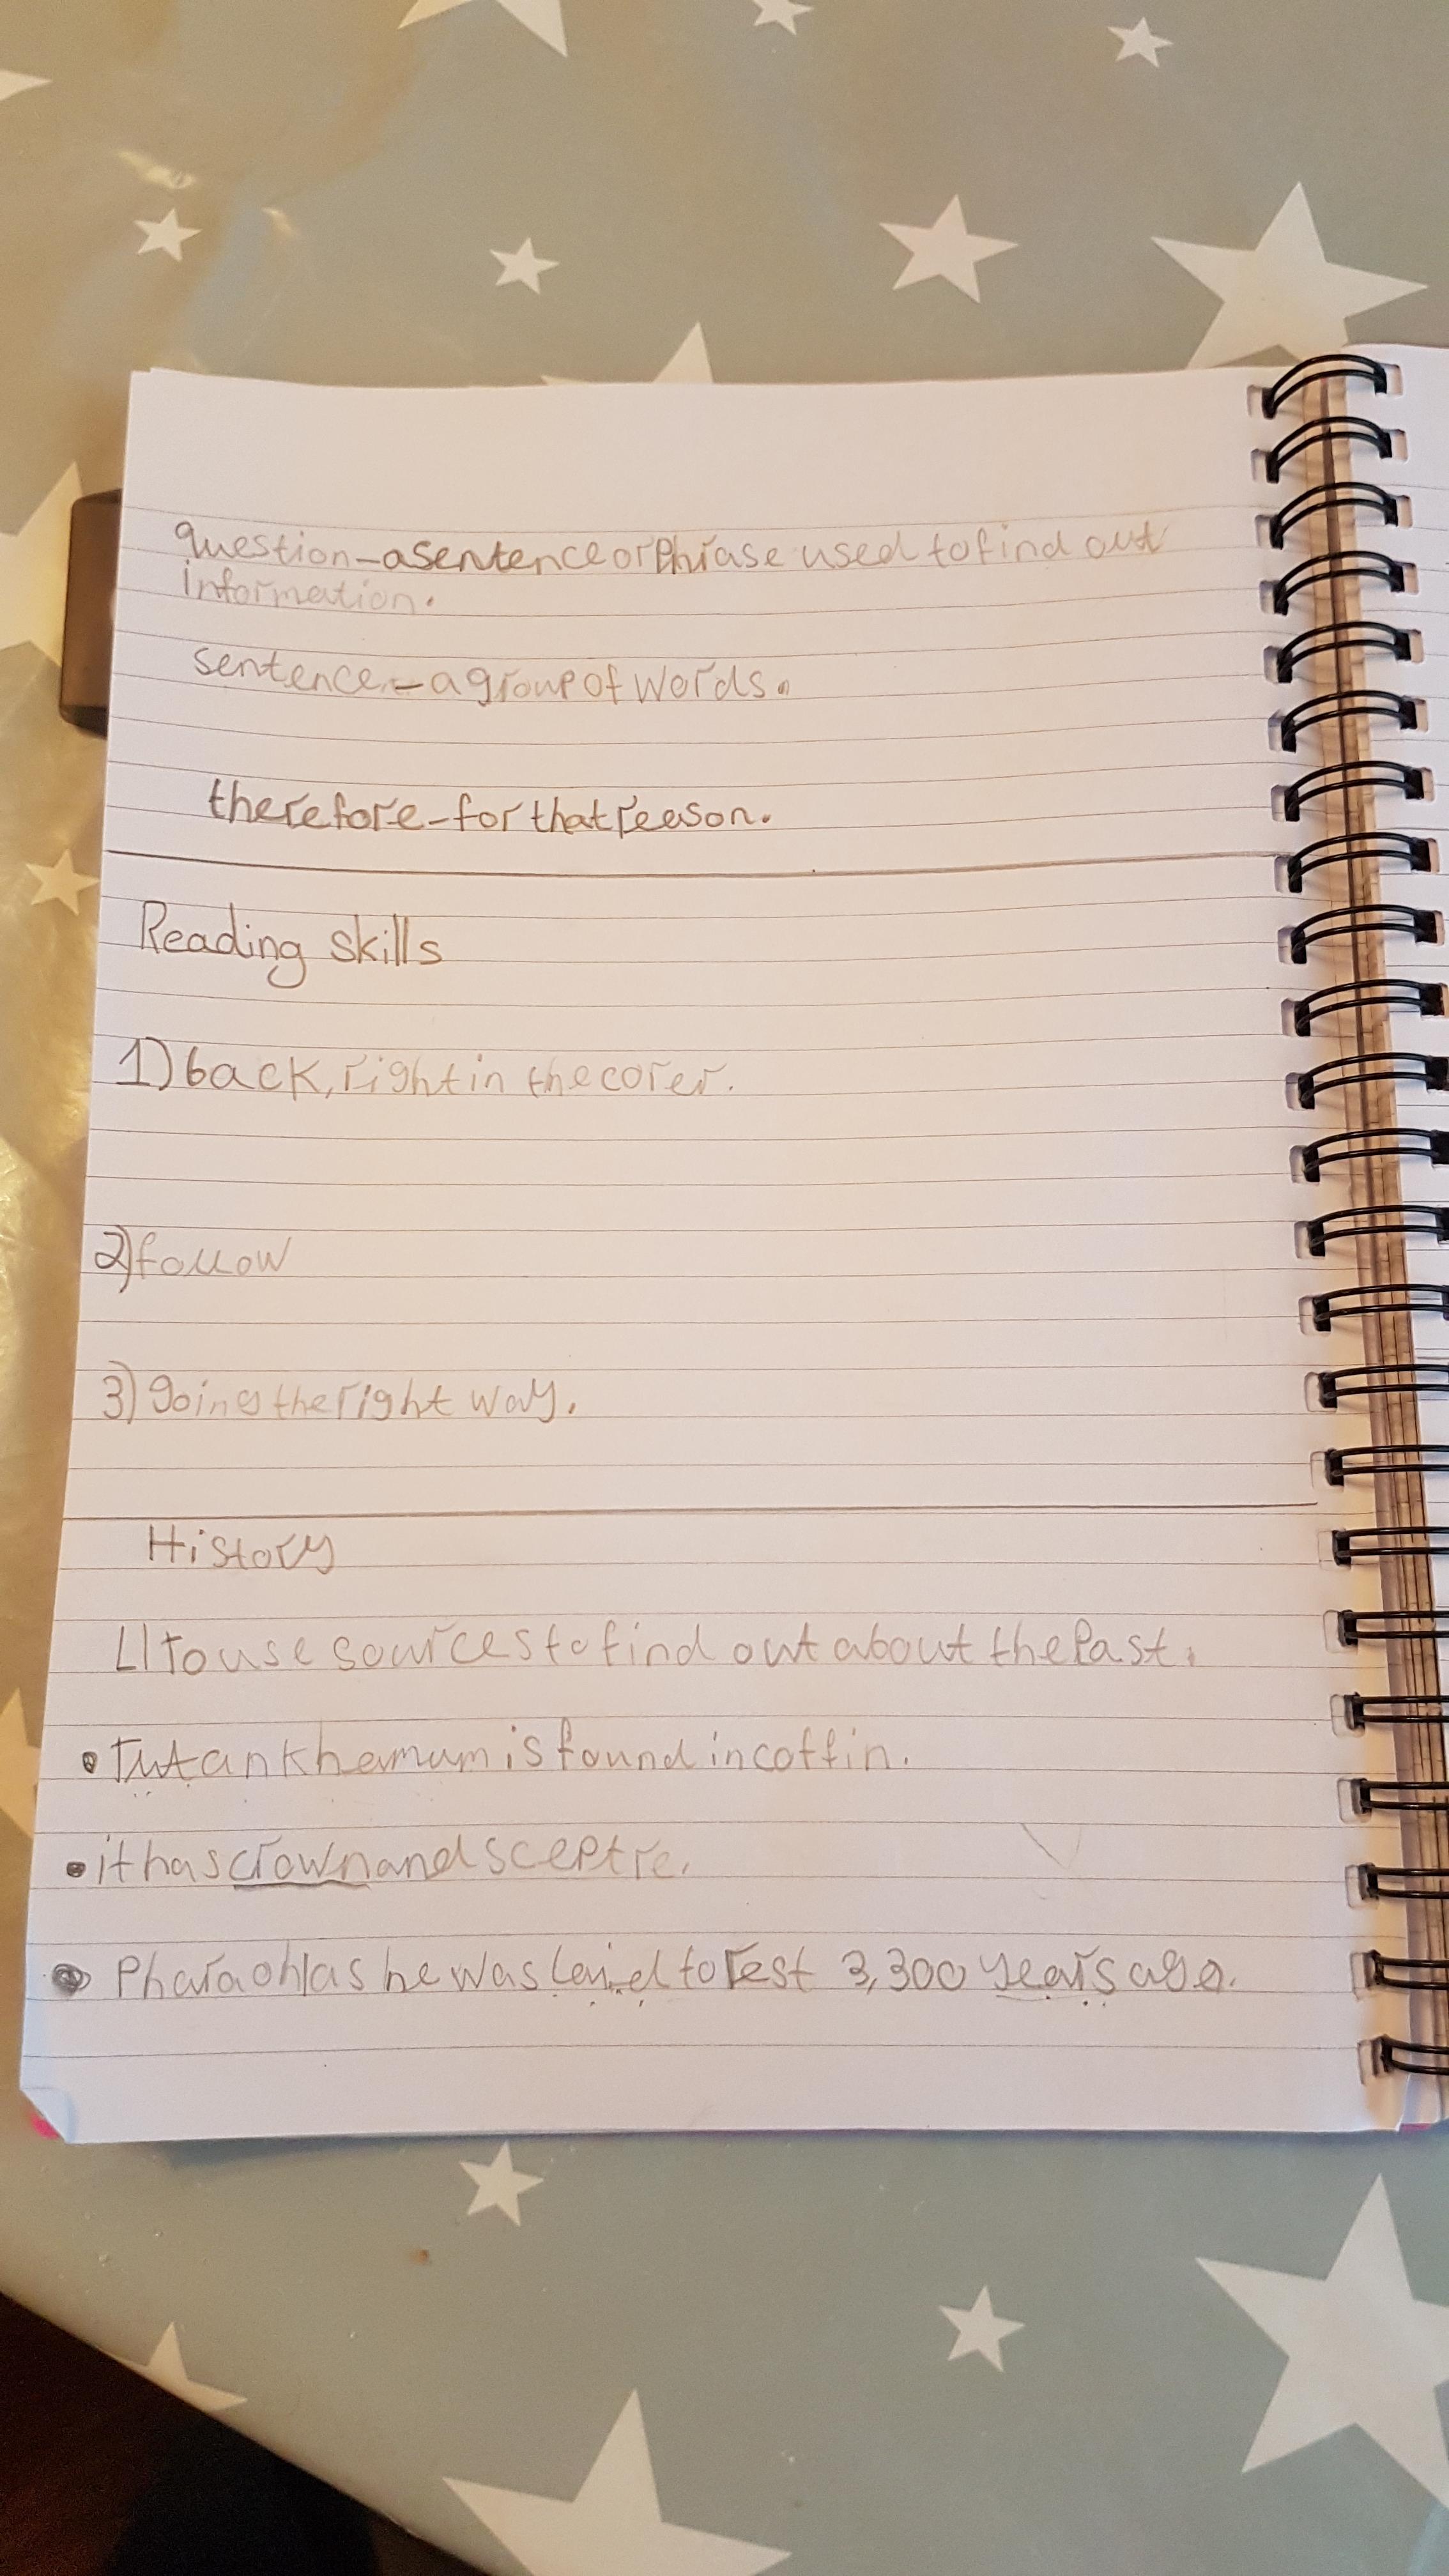 question - a sentence or phrase used to find out
information.
sentence - a group of words.
therefore - for that reason.
Reading skills
1) back, right in the corer.
2) follow
3) going the right way.
History
LI to use sources to find out about the past.
• Tutankhamum is found in coffin.
• it has crown and sceptre.
• Pharaoh as he was laied to rest 3,300 years ago.